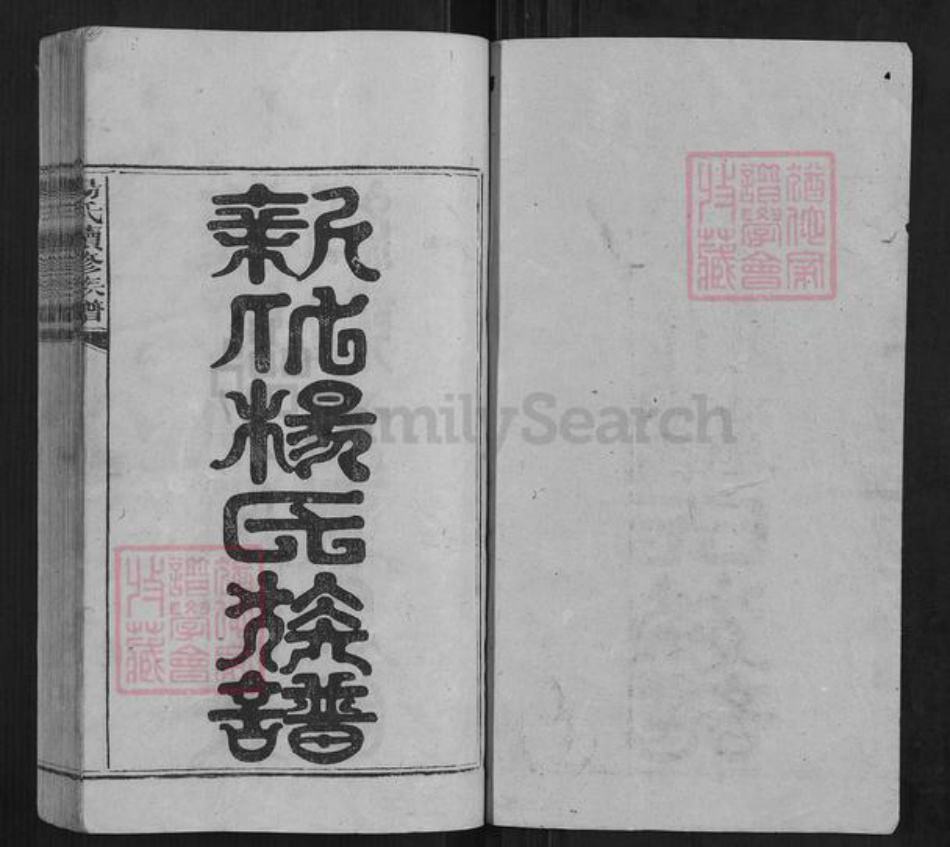 猶他家
譜學會
收藏
FamilySearch
新化楊氏族譜
猶他家
譜學會
收藏
楊氏續修族譜